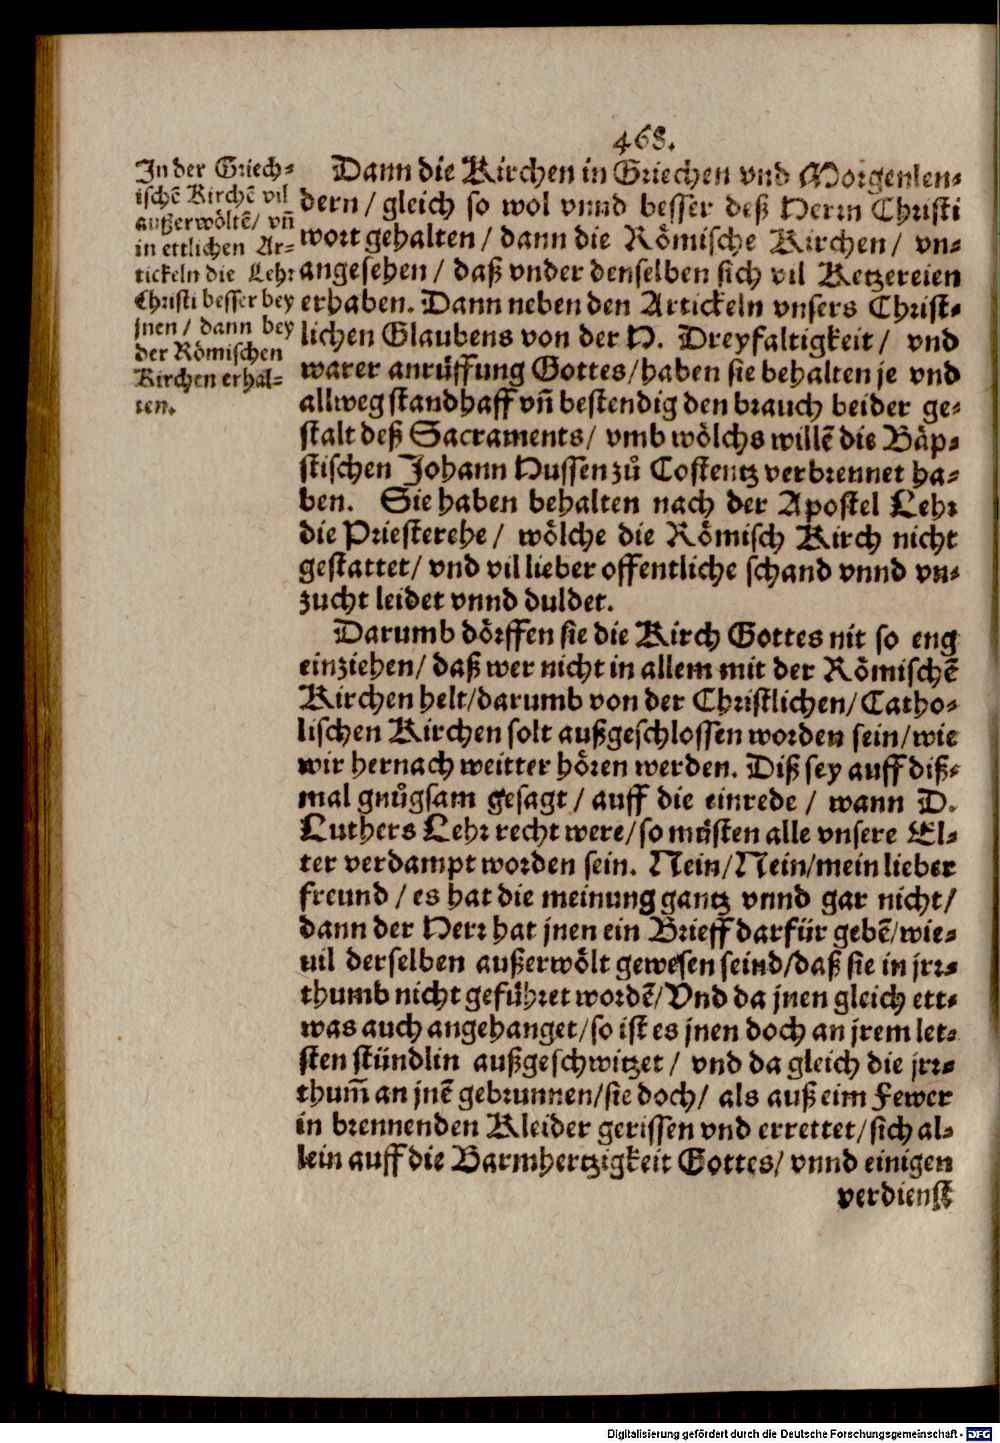 468.
In der Griech⸗
ischẽ Kirchẽ vil
außerwöltẽ/ vñ
in ettlichen Ar⸗
tickeln die Lehr
Christi besser bey
jnen / dann bey
der Römischen
Kirchen erhal⸗
ten.
Dann die Kirchen in Griechen vnd Morgenlen⸗
dern / gleich so wol vnnd besser deß Herrn Christi
wort gehalten / dann die Römische Kirchen / vn⸗
angesehen / daß vnder denselben sich vil Ketzereien
erhaben. Dann neben den Artickeln vnsers Christ⸗
lichen Glaubens von der H. Dreyfaltigkeit / vnd
warer anrüffung Gottes/haben sie behalten je vnd
allweg standhaff vñ bestendig den brauch beider ge⸗
stalt deß Sacraments/ vmb wölchs willẽ die Bäp⸗
stischen Johann Hussen zů Costentz verbrennet ha⸗
ben. Sie haben behalten nach der Apostel Lehr
die Priesterehe / wölche die Römisch Kirch nicht
gestattet/ vnd vil lieber offentliche schand vnnd vn⸗
zucht leidet vnnd duldet.
Darumb dörffen sie die Kirch Gottes nit so eng
einziehen/ daß wer nicht in allem mit der Römischẽ
Kirchen helt/darumb von der Christlichen/ Catho⸗
lischen Kirchen solt außgeschlossen worden sein/wie
wir hernach weitter hören werden. Diß sey auff diß⸗
mal gnůgsam gesagt / auff die einrede / wann D.
Luthers Lehr recht were/so müsten alle vnsere El⸗
ter verdampt worden sein. Nein/Nein/mein lieber
freund / es hat die meinung gantz vnnd gar nicht/
dann der Herr hat jnen ein Brieff darfür gebẽ/wie⸗
uil derselben außerwölt gewesen seind/daß sie in jrr⸗
thumb nicht geführet wordẽ/Vnd da jnen gleich ett⸗
was auch angehanget/so ist es jnen doch an jrem let⸗
sten stündlin außgeschwitzet / vnd da gleich die jrr⸗
thum̃ an jnẽ gebrunnen/sie doch/ als auß eim Fewer
in brennenden Kleider gerissen vnd errettet/sich al⸗
lein auff die Barmhertzigkeit Gottes/ vnnd einigen
verdienst
Digitalisierung gefördert durch die Deutsche Forschungsgemeinschaft - DFG